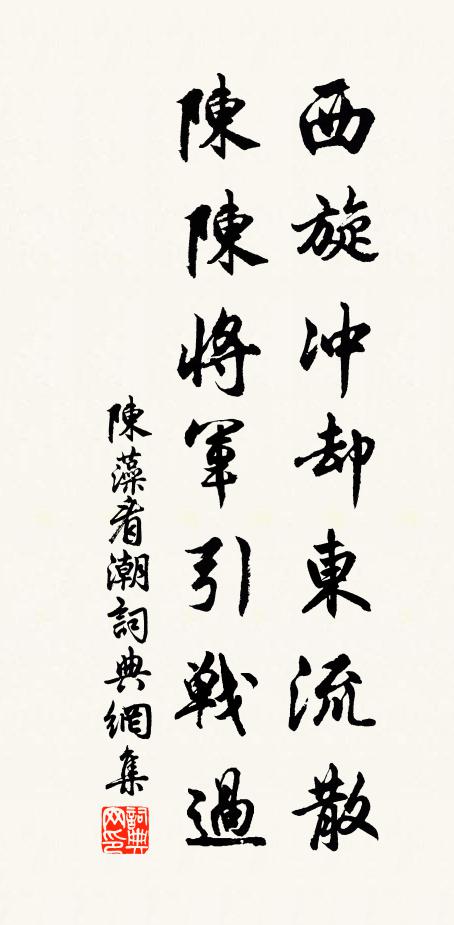 西旋冲却東流散
陳陳將軍引戰過
陳藻看潮詞典網集
詞典网印